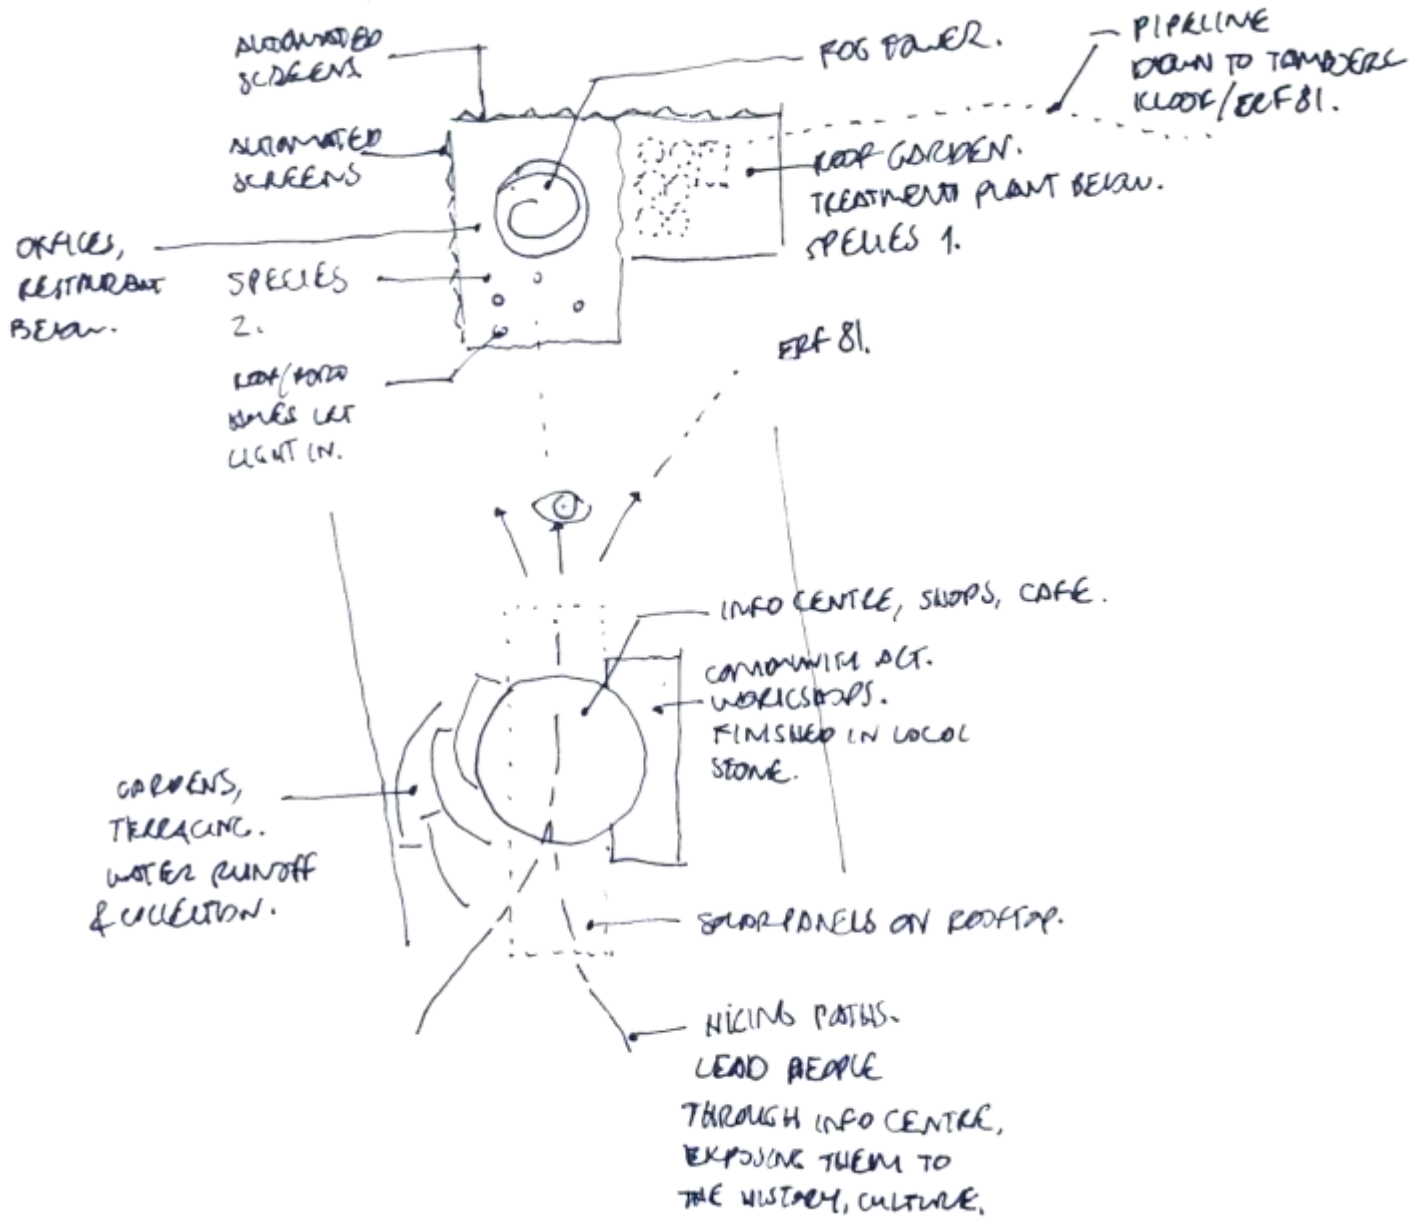 AUTOMATED
SCREENS
FOG TOWER.
PIPELINE
DOWN TO TAMBOERS
KLOOF/ERF 81.
AUTOMATED
SCREENS
ROOF GARDEN.
TREATMENT PLANT BELOW.
SPECIES 1.
OFFICES,
RESTAURANT
BELOW.
SPECIES
2.
ERF 81.
ROOF/
HOLES LET
LIGHT IN.
INFO CENTRE, SHOPS, CAFE.
COMMUNITY ACT.
WORKSHOPS.
FINISHED IN LOCAL
STONE.
GARDENS,
TERRACING.
WATER RUNOFF
& COLLECTION.
SOLAR PANELS ON ROOFTOP.
HIKING PATHS.
LEAD PEOPLE
THROUGH INFO CENTRE,
EXPOSING THEM TO
THE HISTORY, CULTURE.